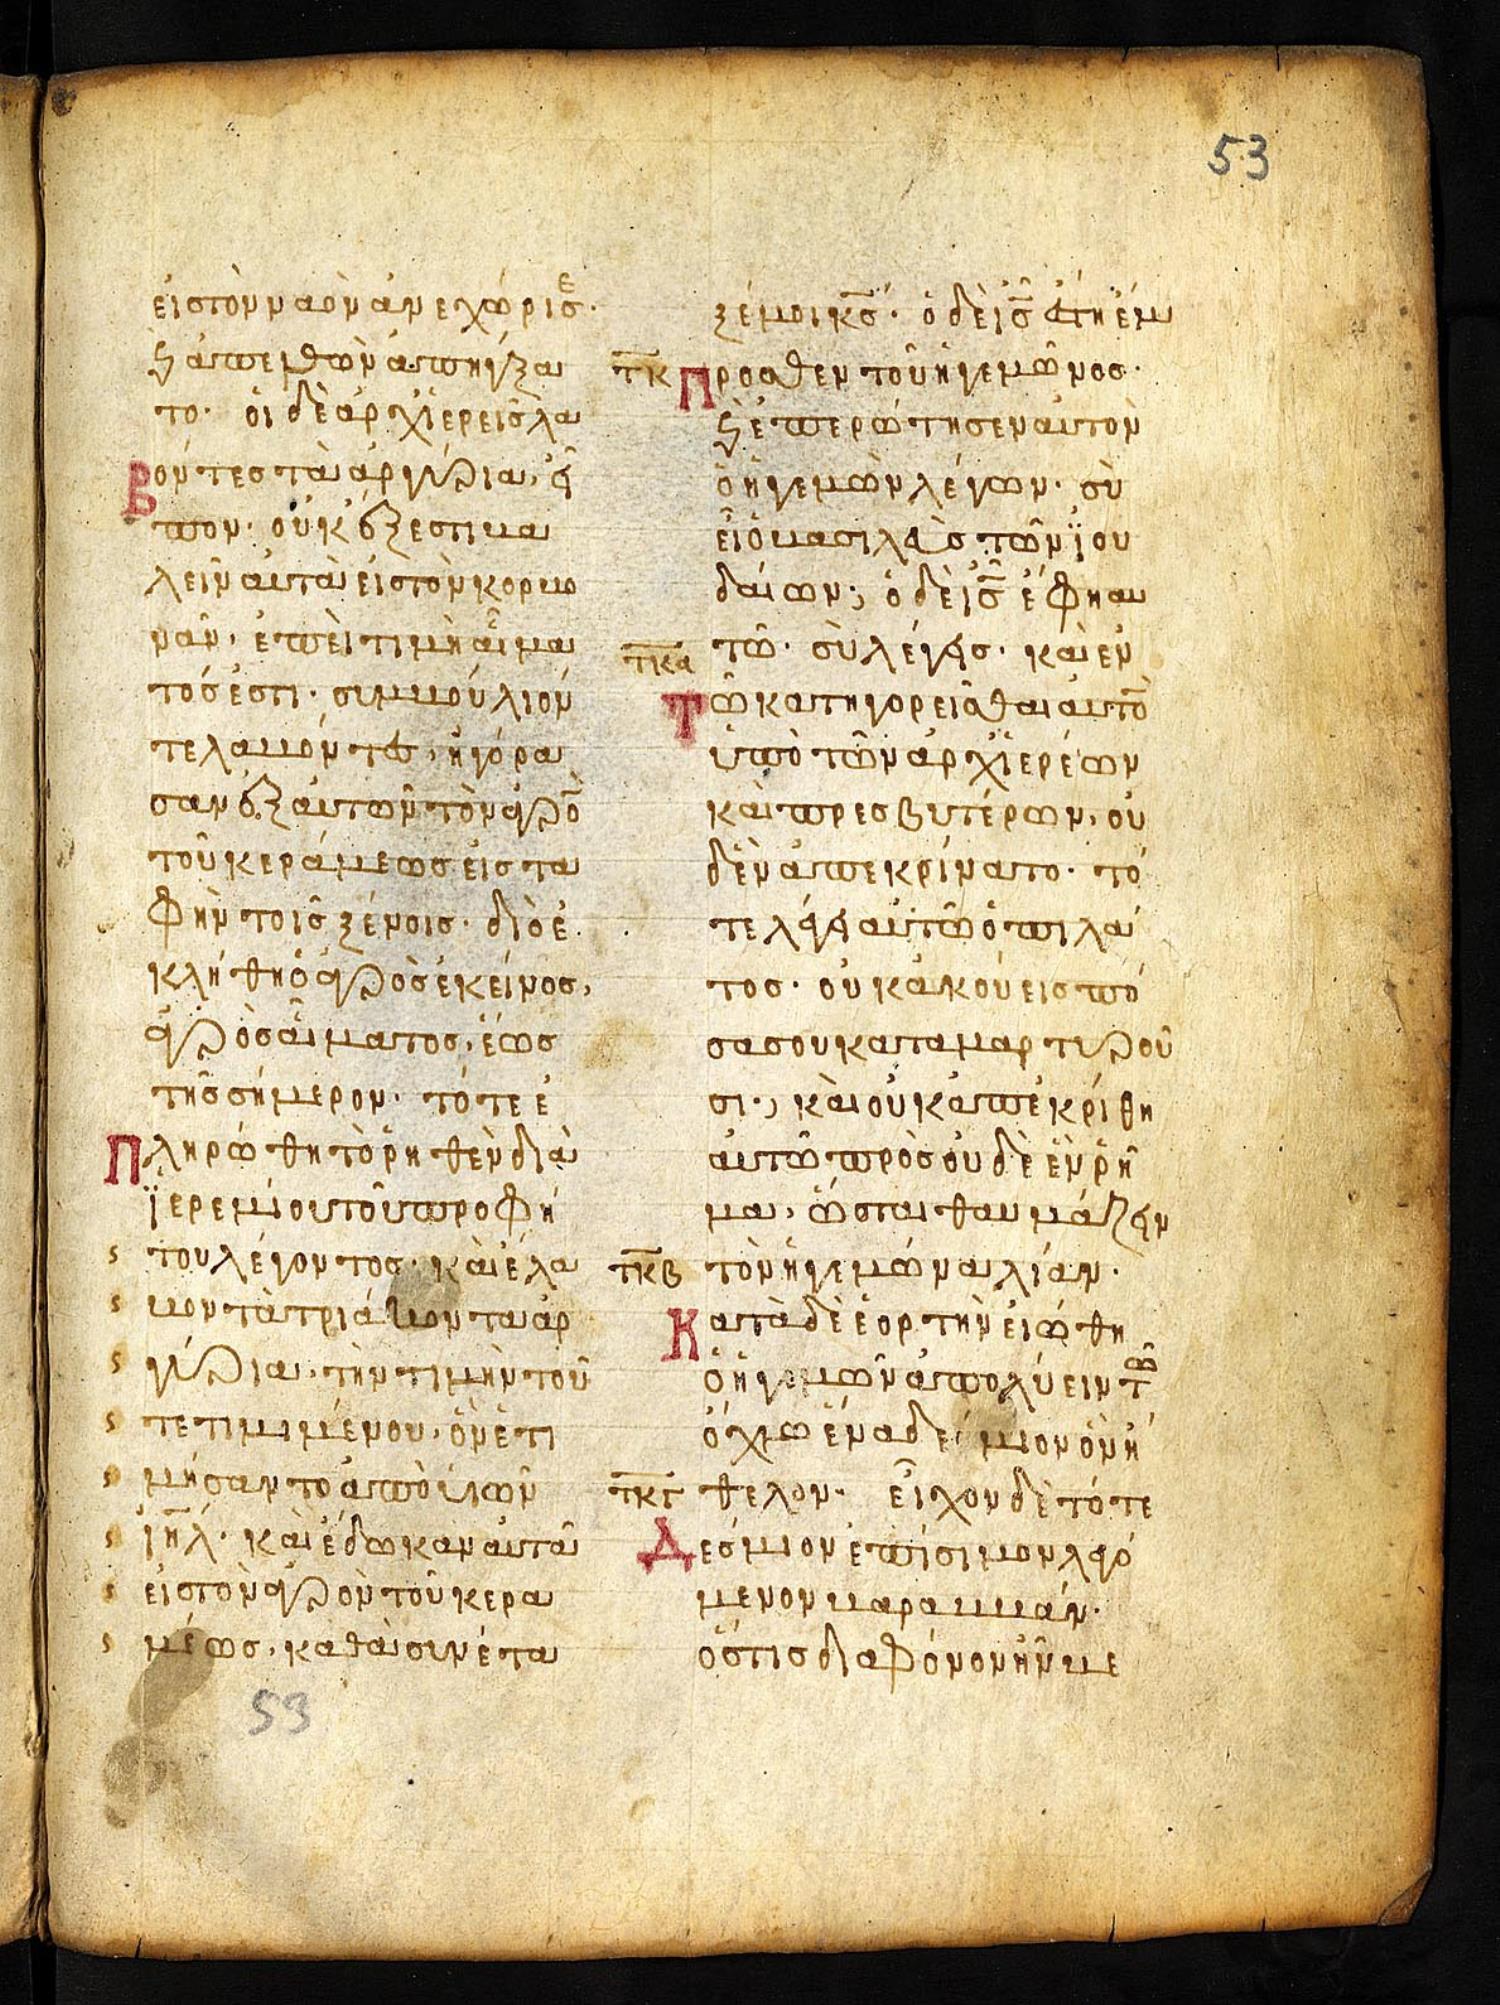 53
εἰς τὸν ναὸν ἀνεχώρισε·
ϗ ἀπελθὼν ἀπηγξα
το· οἱ δὲ ἀρχϊερεῖς λα
βόντες τὰ ἀργύρια, εἶ
πον· οὐκ ἔξεστι βα
λεῖν αὐτὰ εἰς τὸν κορβο
νᾶν, ἐπεὶ τιμὴ αἵμα
τός ἐστι· συμβούλιόν
τε λαβόντες, ἠγόρα
σαν ἐξ αὐτῶν τὸν ἀγρο̅
τοῦ κεράμεως εἰς τα
φὴν τοῖς ξένοις· διὸ ἐ
κλήθη ὁ ἀγρὸς ἐκείνος,
ἀγρὸς αἵματος, ἕως
τῆς σήμερον· τότε ἐ
Πληρώθη τὸ ῥηθὲν διὰ
ϊερεμίου τοῦ προφή
του λέγοντος· καὶ ἔλα
βον τὰ τριάκοντα ἀρ
γύρια, τὴν τιμὴν τοῦ
τετιμιμένου, ὃν ἐτι
μήσαντο ἀπὸ υἱῶν
ἰη̅λ· καὶ ἔδωκαν αὐτὰ
εἰς τὸν ἀγρὸν τοῦ κερα
μέως, καθὰ συνέτα
53
ξέ μοι κ̅σ· ὁ δὲ ι̅σ ἔστη ἔμ
τκ Προσθεν τοῦ ἡγεμῶνος·
ϗ ἐπερώτησεν αὐτὸν
ὁ ἡγεμὼν λέγων· σὺ
εἶ ὁ βασιλεὺς τῶν ϊου
δαίων; ὁ δὲ ι̅σ ἔφη αυ
τῶ· σὺ λέγεις· καὶ ἐν
τκα Τῶ κατηγορεῖσθαι αὐτο̅
ὑπὸ τῶν ἀρχϊερέων
καὶ πρεσβυτέρων, οὐ
δὲν ἀπεκρίνατο· τό
τε λέγει αὐτῶ ὁ πιλα
τος· οὐκ ἀκούεις πό
σα σου καταμαρτυροῦ
σι; καὶ οὐκ ἀπεκρίθη
αὐτῶ πρὸς οὐδὲ ἓν ῥῆ
μα, ὥσται θαυμάζειν
τκβ τὸν ἡγεμόνα λίαν·
Κατὰ δὲ ἑορτὴν εἰώθη
ὁ ἡγεμῶν ἀπολύειν τῶ
ὄχλω ἕνα δέσμιον ὃν ἤ
τκγ θελον· εἶχον δὲ τότε
Δέσμιον ἐπίσιμον λεγό
μενον βαραββάν·
ὅστις διὰ φόνον ἦν βε